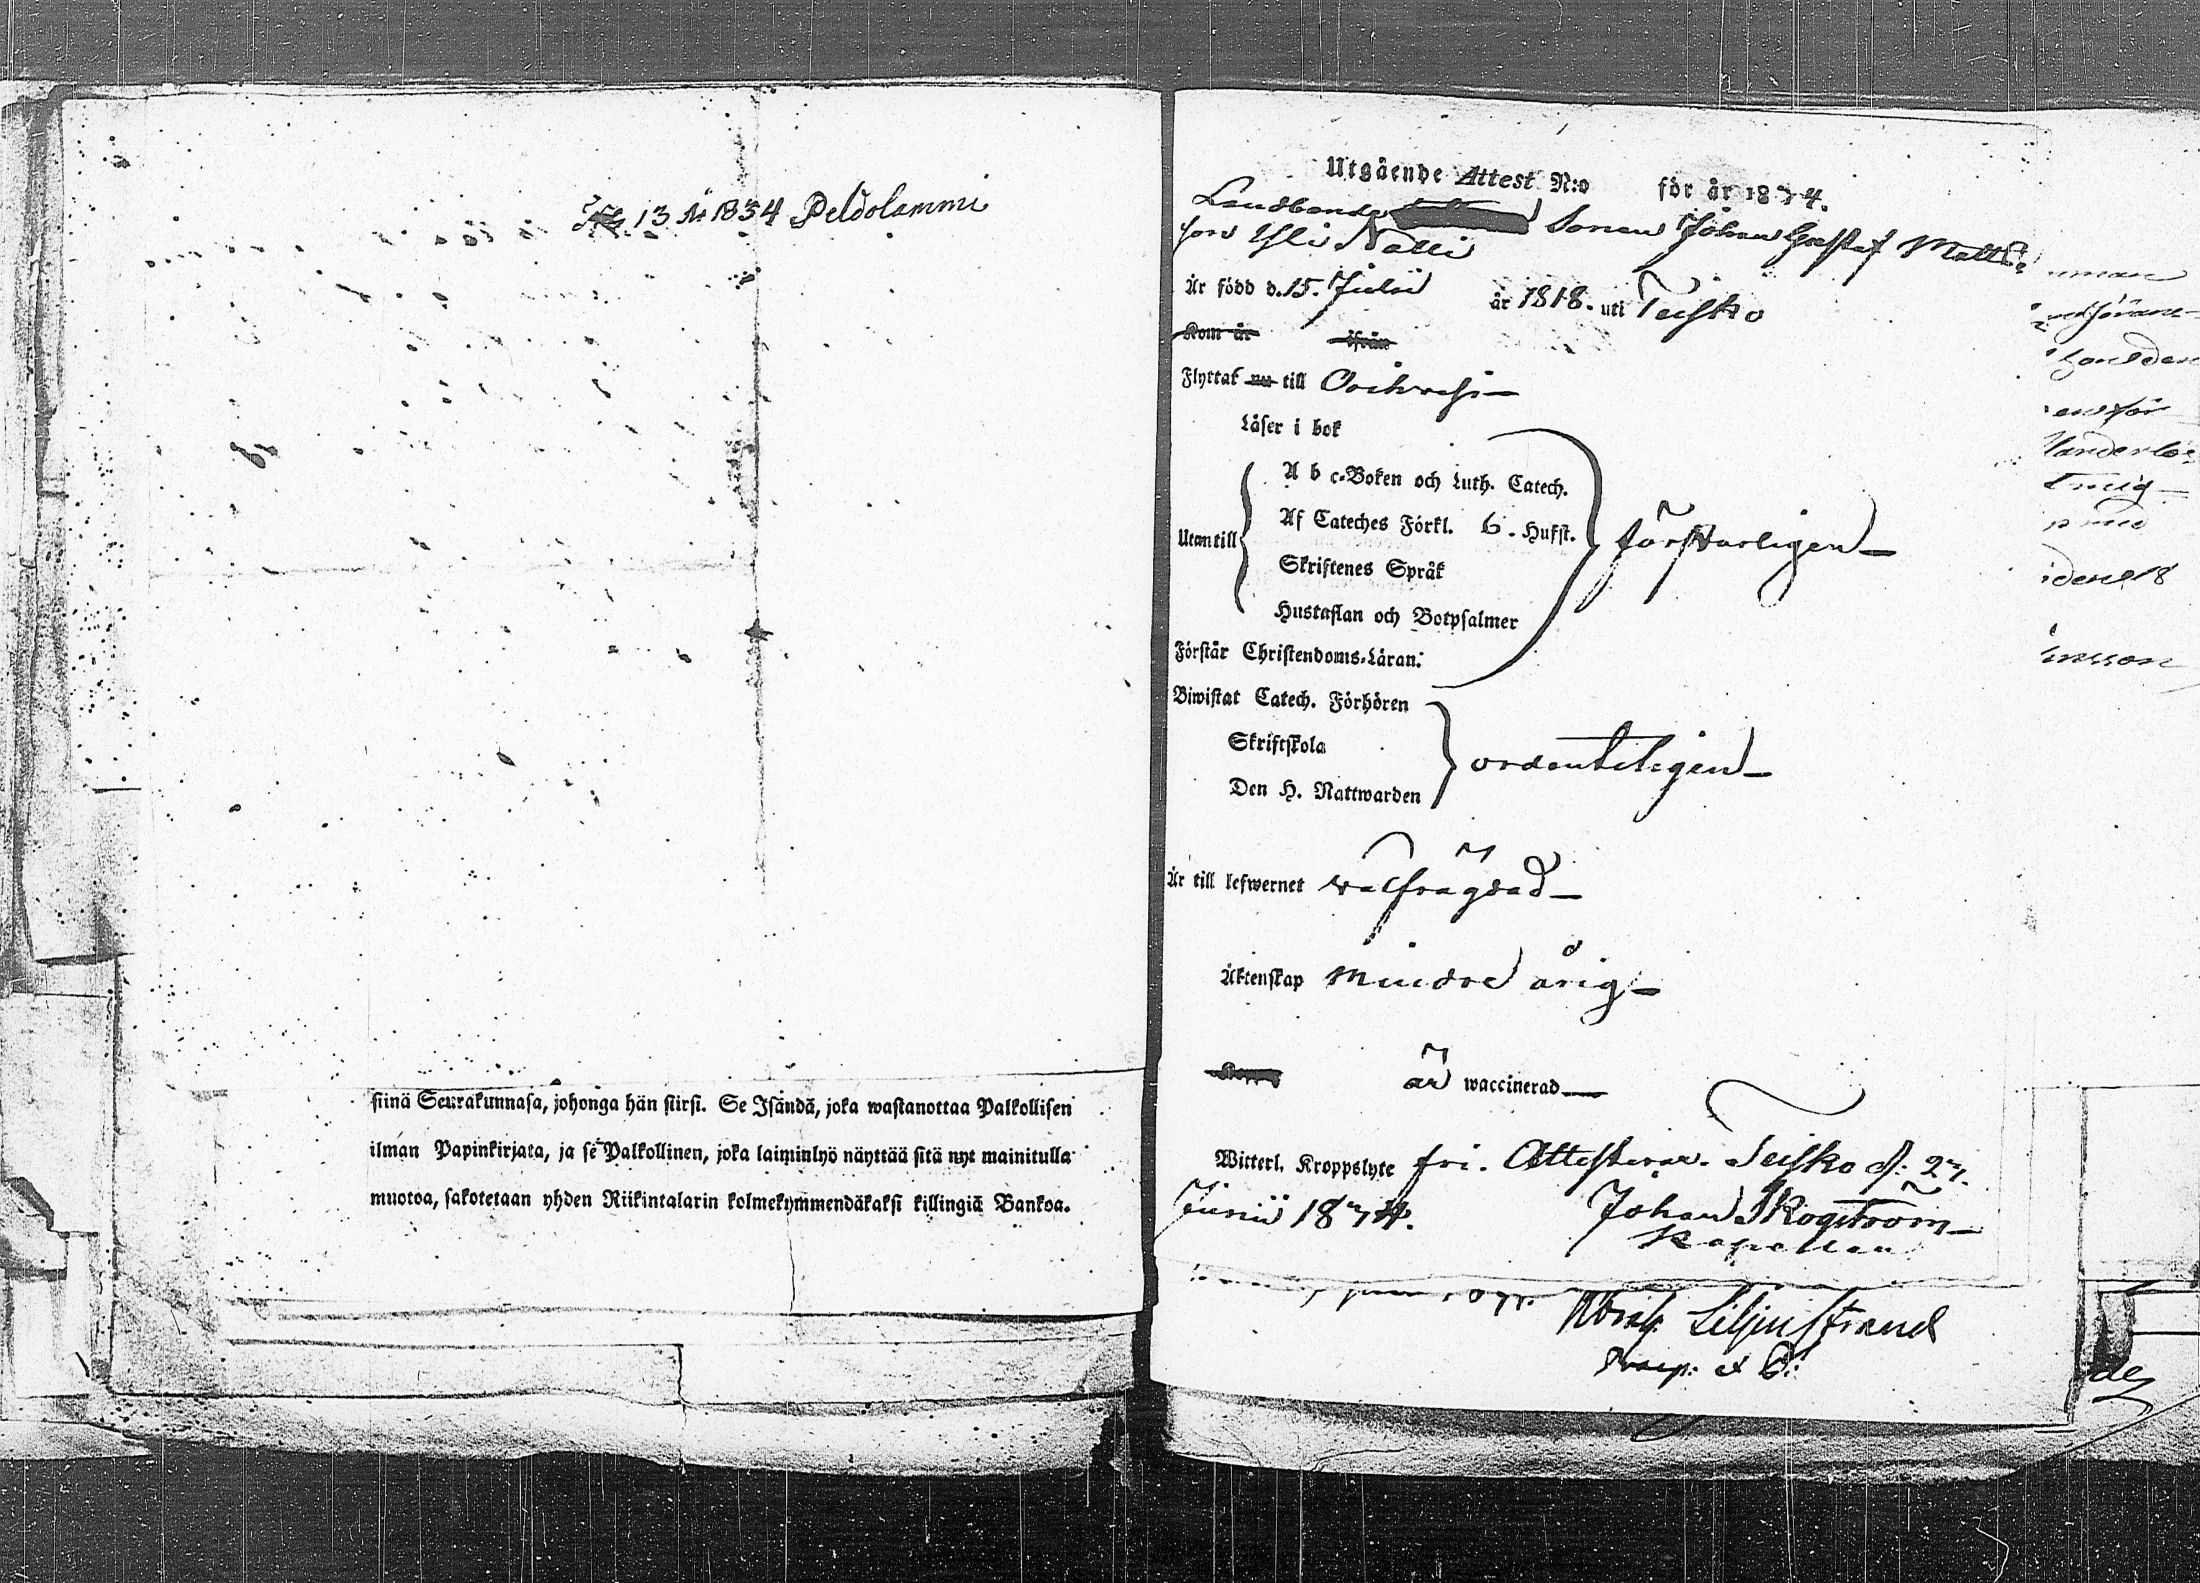 13 N 1834 Peldolammi
siinä Seurakunnasa, johonga hän siirsi. Se Isändä, joka wastanottaa Palkollisen
ilman Papinkirjata, ja se Palkollinen, joka laiminlyö näyttää sitä nyt mainitulla
muotoa, sakotetaan yhden Riikintalarin kolmekymmendäkaksi killingiä Bankoa.
Utgående Attest N:o för år 1834.
Landbonde Sonen Johan Gustaf Matts
son Yli Nalli
Är född d. 15. Julii år 1818. uti Teisko
Kom år ifrån
Flyttat nu till Orihvesi
Läser i bok
A b c-Boken och Luth. Catech.
Af Cateches Förkl. 6. Hufst.
Utantill
försvarligen
Skriftenes Språk
Hustaflan och Botpsalmer
Förstår Christendoms-Läran:
Biwistat Catech. Förhören
Skriftskola
ordenteligen
Den H. Nattwarden
Är till lefwernet välfrägdad
Äktenskap Mindre årig
är waccinerad
Witterl. Kroppslyte fri. Attesterar. Teisko d. 27.
Junii 1834.
Johan Skogström
Kapellan
Abrah. Liljenstrand